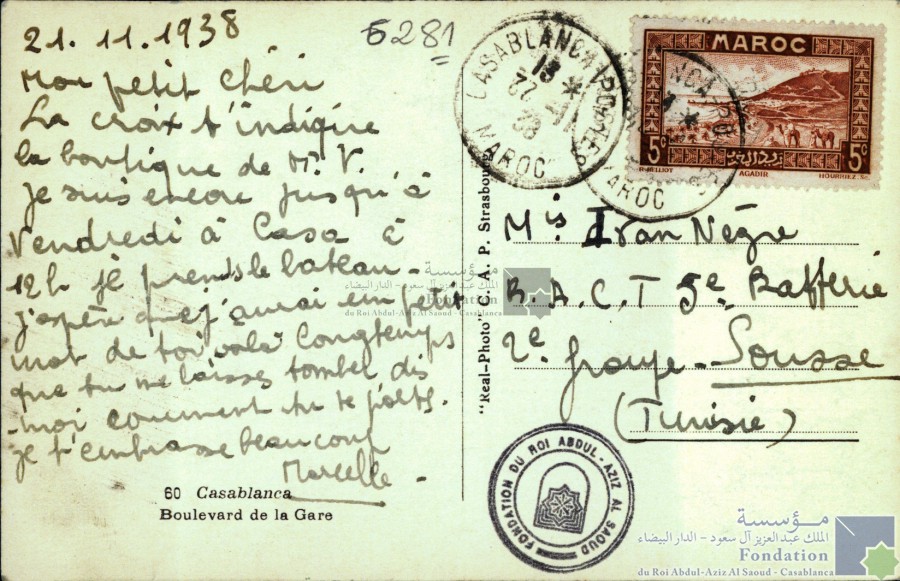 21.11.1938
Mon petit chéri
La croix t'indique
la boutique de Mr V.
je suis encore jusqu'à
Vendredi à Casa à
12h je prends le bateau -
j'espère que j'aurai un petit
mot de toi voilà longtemps
que tu me laisses tomber dis
-moi comment tu te portes.
je t'embrasse beaucoup
Marcelle
60 Casablanca
Boulevard de la Gare
6281
CASABLANCA POSTES
MAROC
MAROC
5c 5c
AGADIR
"Real-Photo" C. A. P. Strasbourg
Mis Ivan Nègre
B.A.C.T 5e Batterie
2e groupe - Sousse
(Tunisie)
FONDATION DU ROI ABDUL-AZIZ AL SAOUD
مؤسسة
الملك عبد العزيز آل سعود - الدار البيضاء
Fondation
du Roi Abdul-Aziz Al Saoud - Casablanca
مؤسسة
الملك عبد العزيز آل سعود - الدار البيضاء
Fondation
du Roi Abdul-Aziz Al Saoud - Casablanca